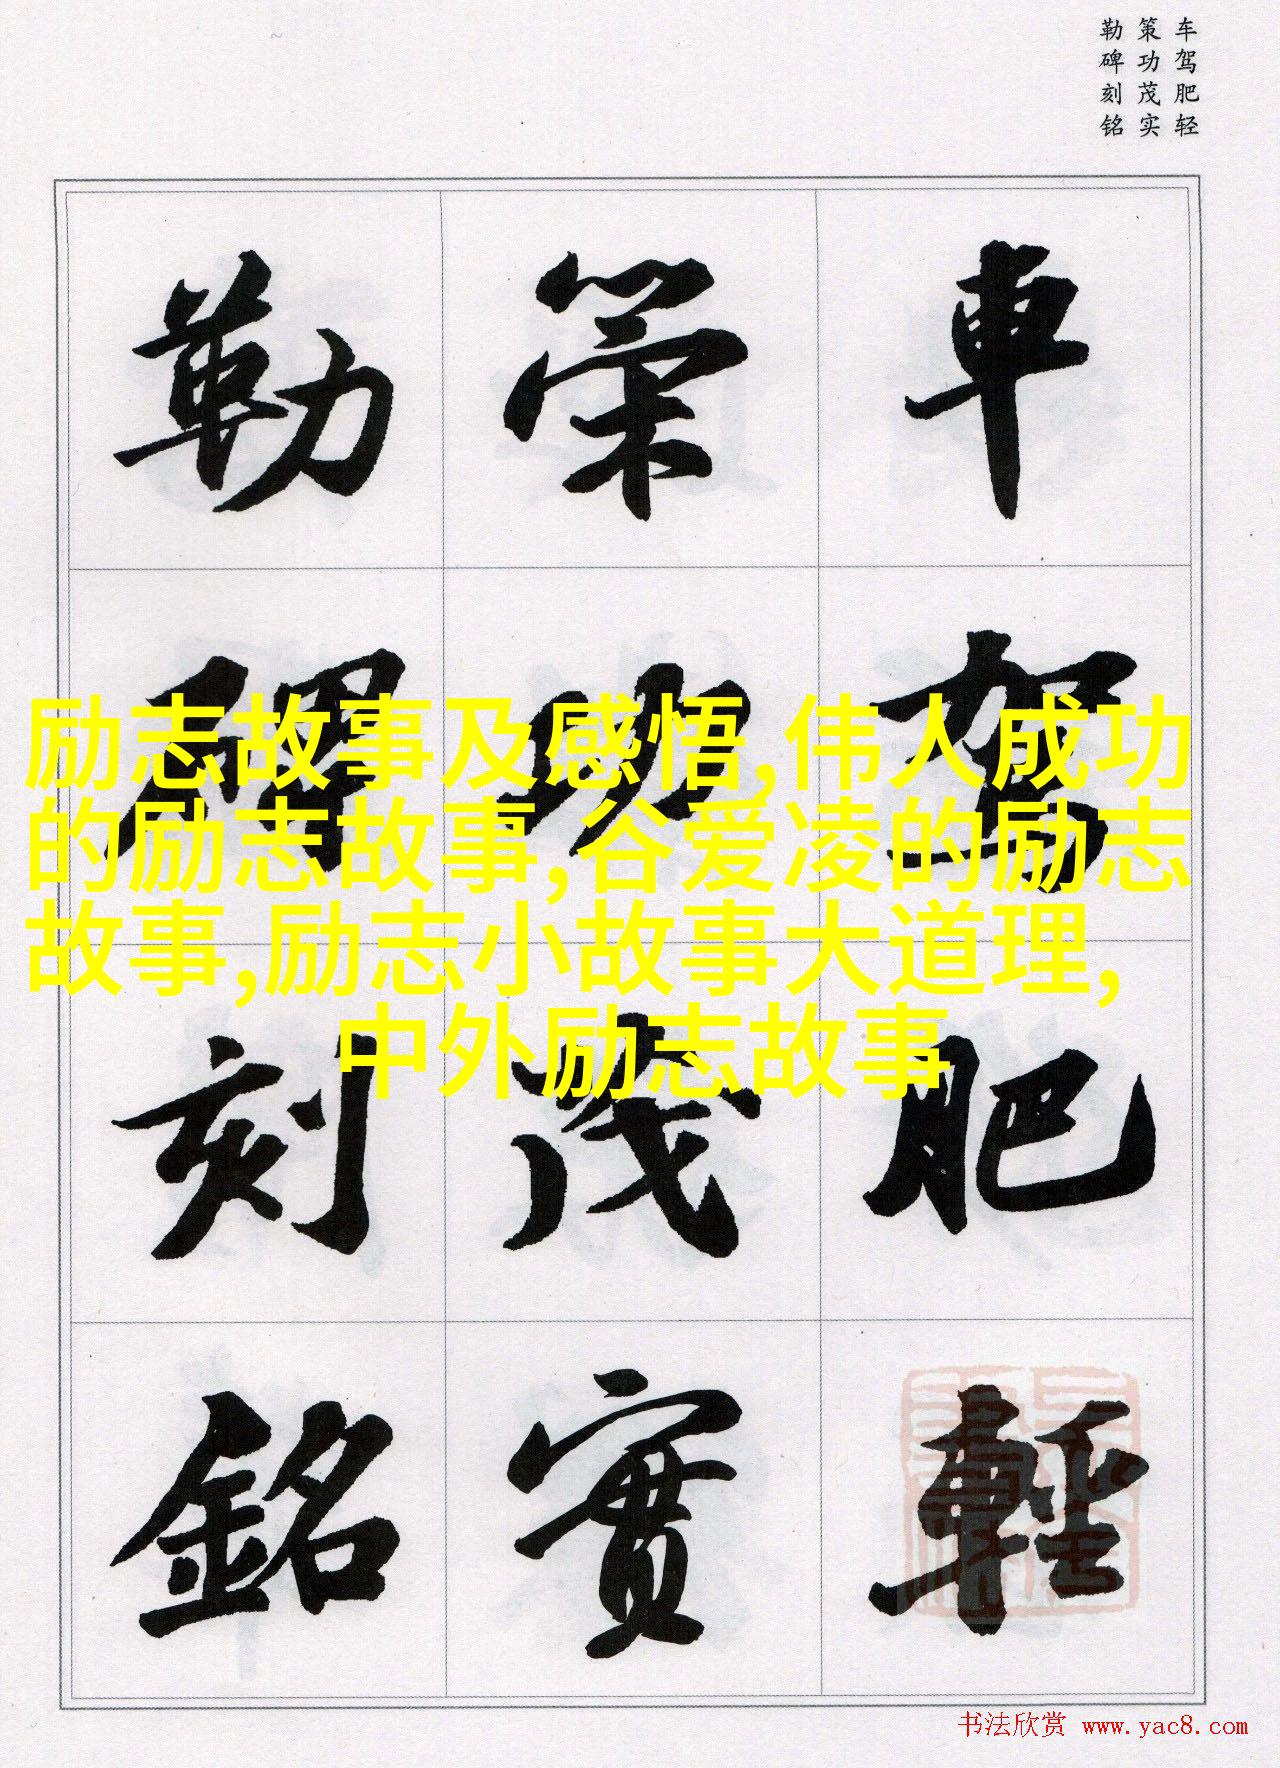 车驾肥轻
策功茂实
勒碑刻铭
車駕肥輕
策功茂實
勒碑刻銘
励志故事及感悟,伟人成功
的励志故事,谷爱凌的励志
故事,励志小故事大道理,
中外励志故事
书法欣赏 www.yac8.com